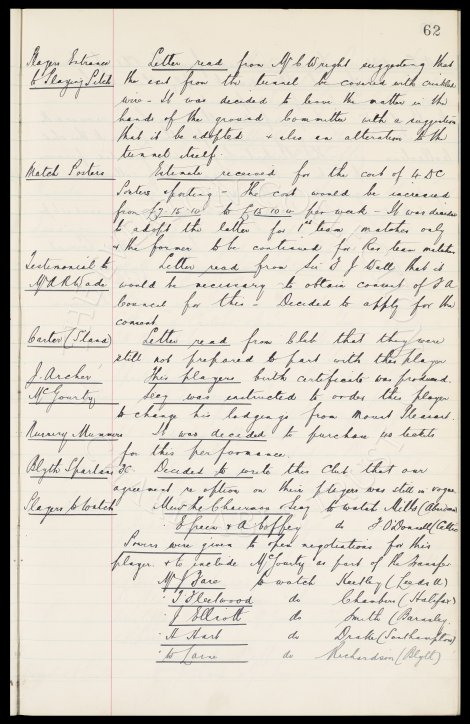 62
Players Entrance Letter read from Mr C Wright suggesting that
to Playing Pitch the exit from the tunnel be covered with crinkled
wire - It was decided to leave the matter in the
hands of the ground Committee with a suggestion
that it be adopted & also an alteration to the
tunnel itself.
Match Posters Estimate received for the cost of 4 DC
Posters sporting - The cost would be increased
from £7-15-10 to £15-10-0 per week - It was decided
to adopt the latter for 1st team matches only
& the former to be continued for Res team matches
Testimonial to Letter read from Sir F J Wall that it
Mr A R Wade would be necessary to obtain consent of FA
Council for this - Decided to apply for the
consent
Carter (Stand) Letter read from Club that they were
still not prepared to part with this player
J. Archer This players birth certificate was produced.
McGourty Secy was instructed to order this player
to change his lodgings from Mount Pleasant.
Nursery Mummers It was decided to purchase no tickets
for this performance.
Blyth Spartans Decided to write this Club that our
agreement re option on their players was still in vogue
Players to Watch The Chairman & Secy to watch Mills (Aberdeen
& A Coffey do F O'Donnell (Celtic
Powers were given to open negotiations for this
player & to include McGourty as part of the Transfer
Mr J Fare to watch Keetley (Leeds U)
T Fleetwood do Chambers (Halifax)
J Elliott do Smith (Barnsley
H Hart do Drake (Southampton)
do Richardson (Blyth)